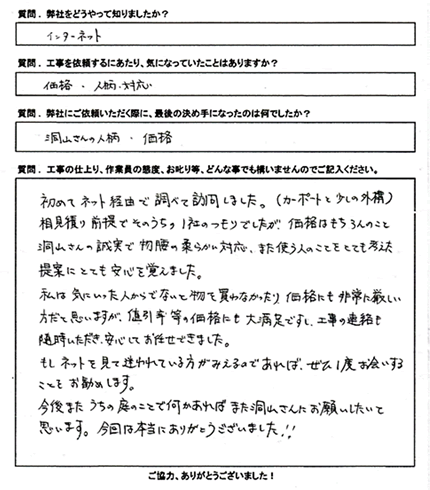 質問．弊社をどうやって知りましたか？
インターネット
質問．工事を依頼するにあたり、気になっていたことはありますか？
価格 ・ 人柄・対応
質問．弊社にご依頼いただく際に、最後の決め手になったのは何でしたか？
洞山さんの人柄 ・ 価格
質問．工事の仕上り、作業員の態度、お叱り等、どんな事でも構いませんのでご記入ください。
初めて ネット経由で 調べて 訪問しました。（カーポートと少しの外構）
相見積り前提で そのうちの 1社のつもりでしたが、価格はもちろんのこと
洞山さんの誠実で 物腰の柔らかい対応、また使う人のことをとても考えた
提案に とても 安心を覚えました。
私は 気にいった人からでないと 物を 買わなかったり 価格にも 非常に厳しい
方だと思いますが、値引率 等の価格にも 大満足ですし、工事の連絡も
随時いただき、安心して お任せできました。
もし ネットを見て 迷われている方がみえるのであれば、ぜひ 1度お会いする
ことを お勧めします。
今後また うちの庭のことで何かあれば また洞山さんにお願いしたいと
思います。今回は本当にありがとうございました！！
ご協力、ありがとうございました！